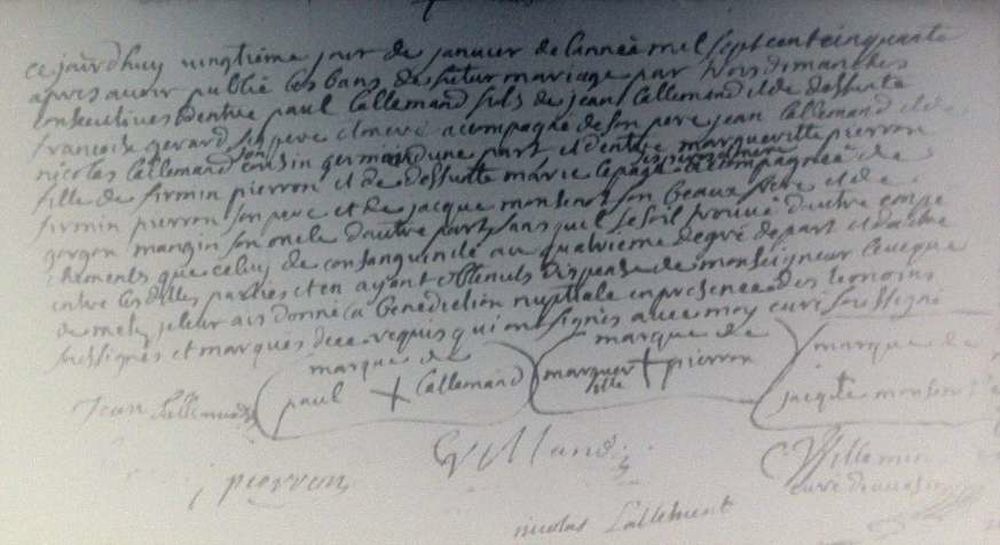 ce jourdhuy vingtieme jour de janvier de lannée mil sept cent cinquante
apres avoir publié les bans de futur mariage par trois dimanches
consecutives dentre paul lallemand fils de jean lallemand et de deffunte
francoise gerard ses pere et mere acompagné de son pere jean lallemand et de
nicolas lallemand son cousin germain dune part et dentre margueritte pierron
fille de firmin pierron et de deffunte marie lepage ses pere et mere acompagnée de
firmin pierron son pere et de jacque monsort son beaux frere et de
gorgon mangin son oncle dautre part sans quil se soit trouvé dautre empe
chements que celuy de consanguinité au quatrieme degré de part et dautre
entre les dittes parties et en ayant obtenuts dispense de monseigneur leveque
de metz je leur ais donné la benediction nuptiale en presence des temoins
soussignés et marques de ce requis qui ont signés avec moy curé soussigné
marque de
paul + lallemand
marque de
marguer itte + pierron
marque de
jacque monsort
Jean lallemand
j pierron
C Villemin
curé
nicolas Lallemant